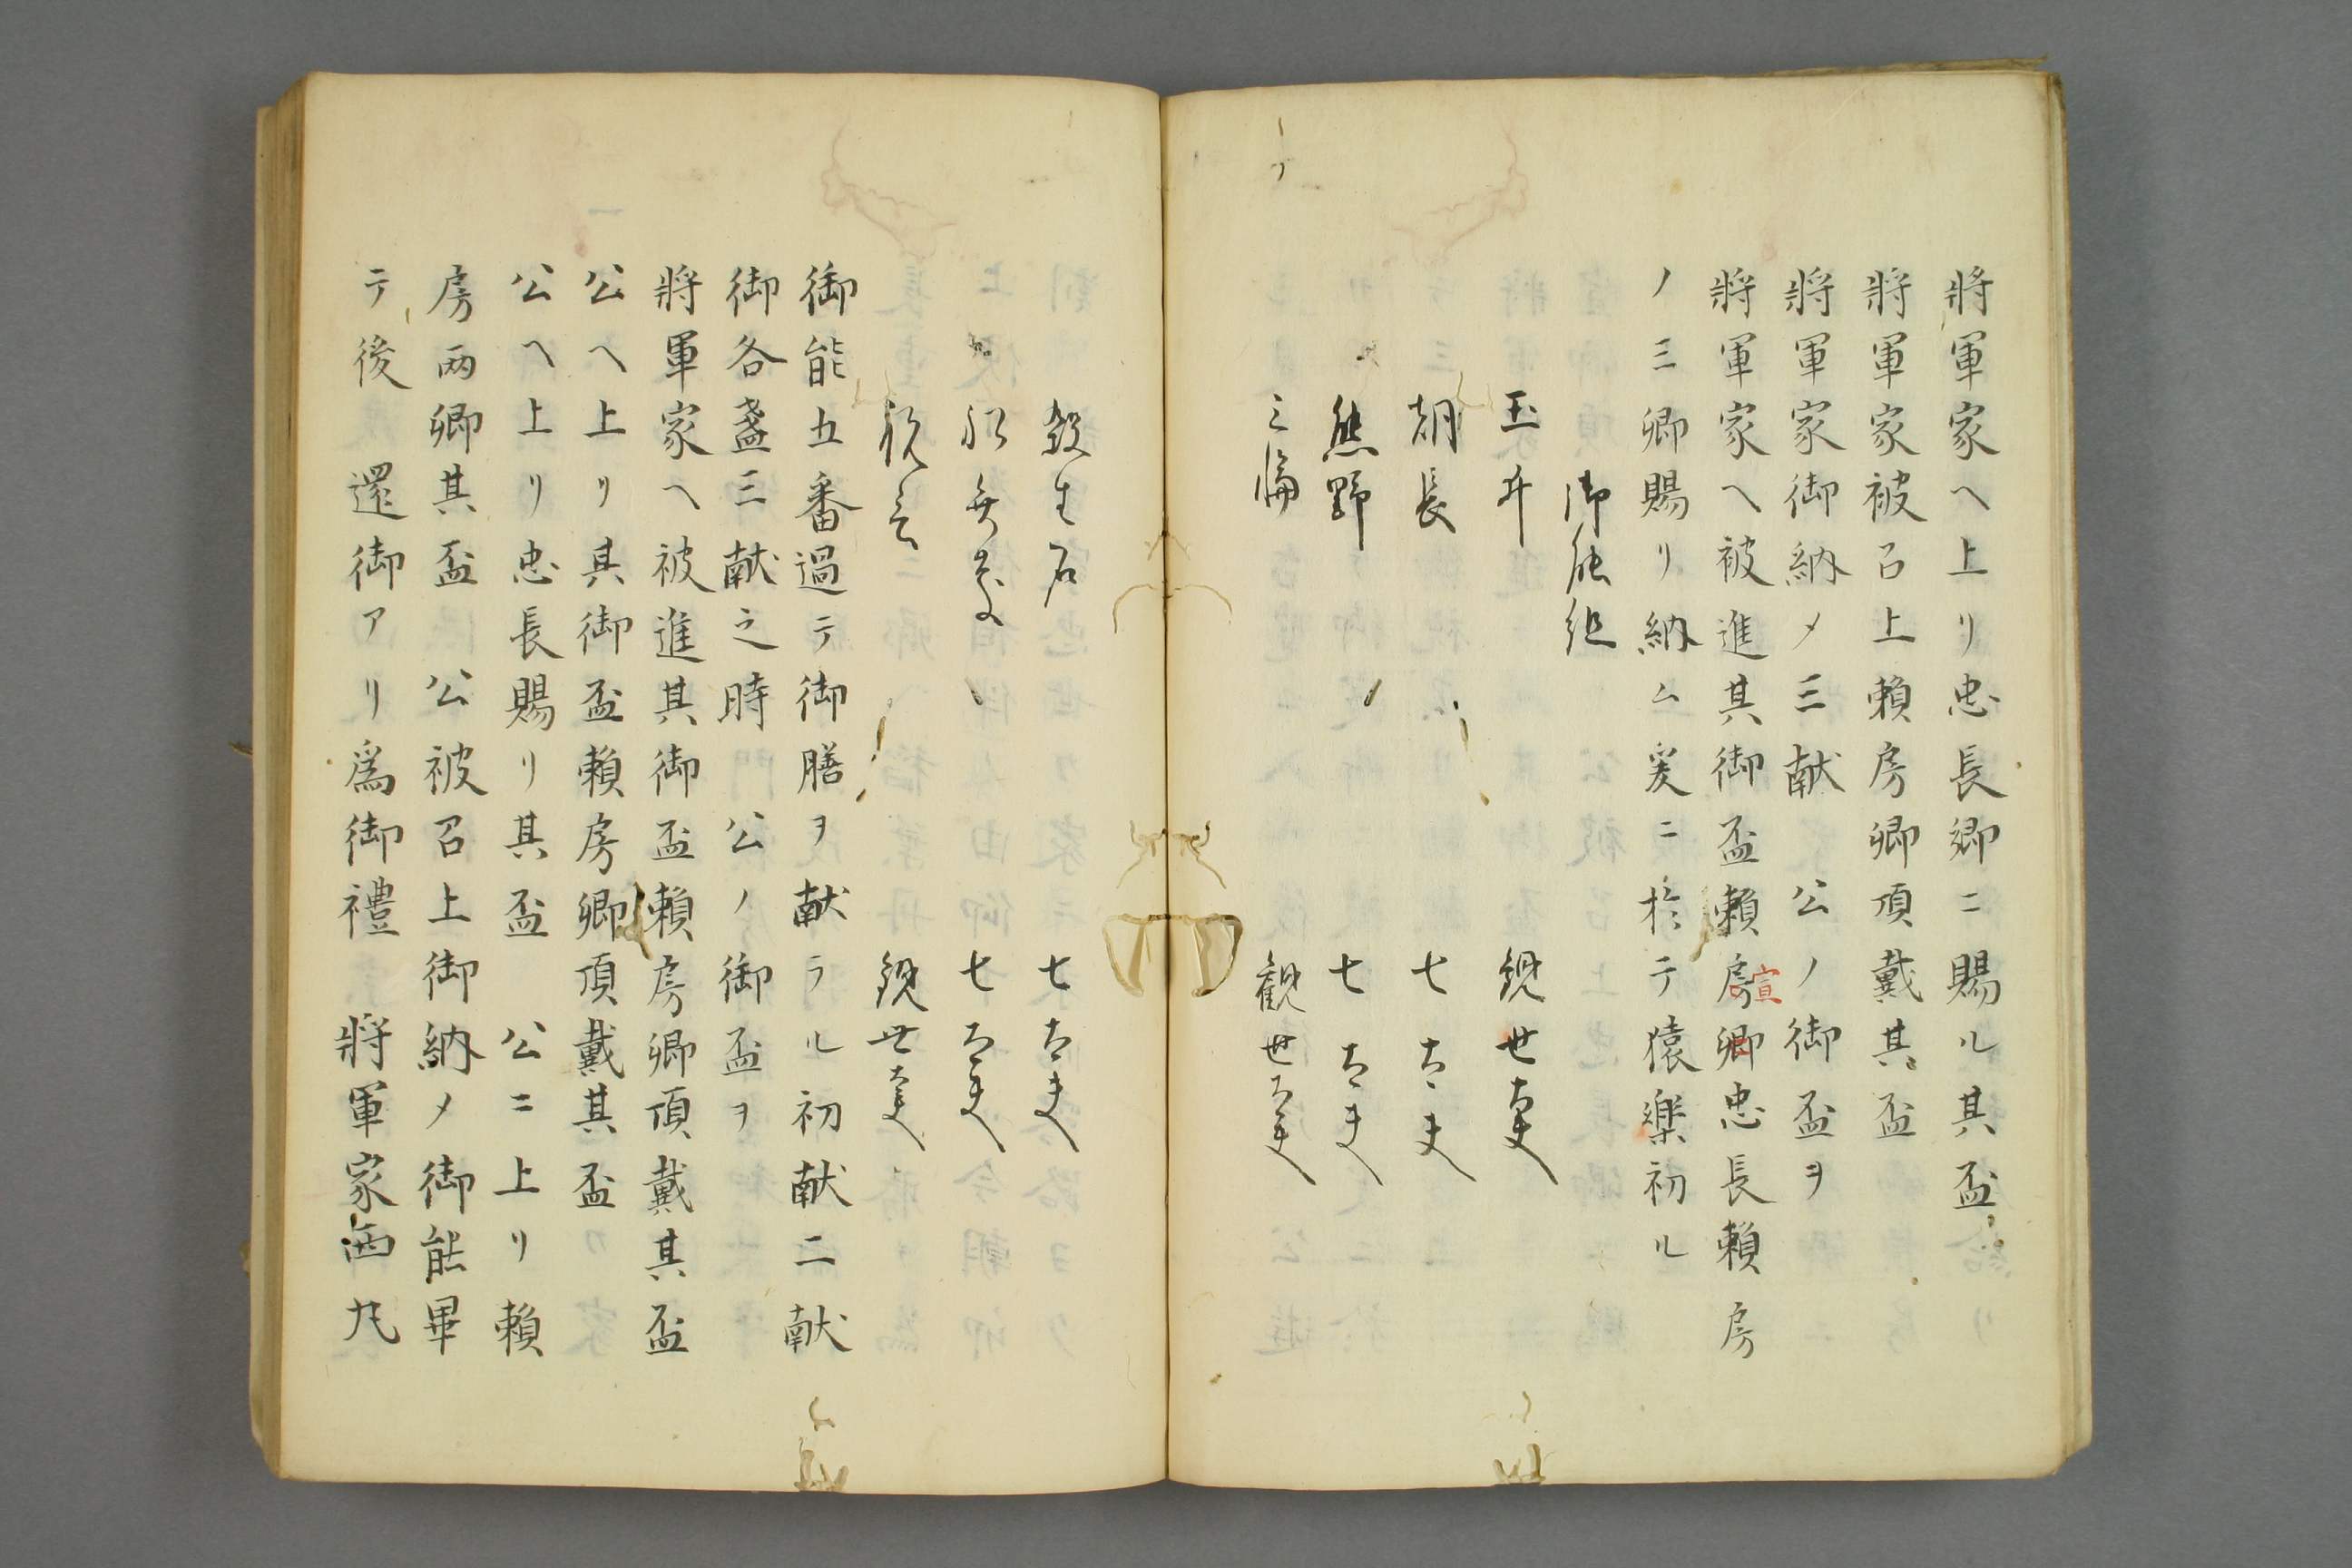 將軍家ヘ上リ忠長卿ニ賜ル其盃
將軍家被召上賴房卿頂戴其盃
將軍家御納メ三献　公ノ御盃ヲ
將軍家ヘ被進其御盃賴房卿忠長賴房
宣
ノ三卿賜リ納ム爰ニ於テ猿樂初ル
御能組
玉井　観世太夫
朝長　七太夫
熊野　七太夫
三輪　観世太夫
殺生石　七太夫
祝言　観世太夫
御能五番過テ御膳ヲ献ラル初献二献
御各盞三献之時　公ノ御盃ヲ
將軍家ヘ被進其御盃賴房卿頂戴其盃
公ヘ上リ其御盃賴房卿頂戴其盃
公ヘ上リ忠長賜リ其盃　公ニ上リ賴
房両卿其盃　公被召上御納メ御能畢
テ後　還御アリ為御禮　將軍家西丸